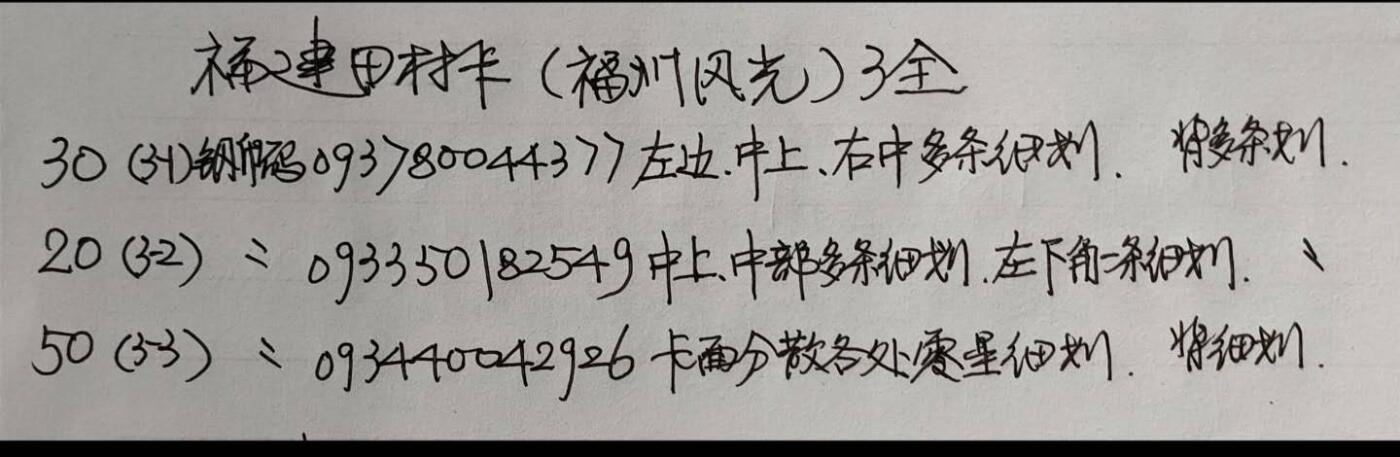 福建田村卡（福州风光）3全
30（3-1）钢印码093780044377左边.中上、右中多条细划. 背多条划.
20（3-2）〃 093350182549中上.中部多条细划.左下角一条细划. 、
50（3-3）〃 093440042926卡面分散各处零星细划. 背细划.